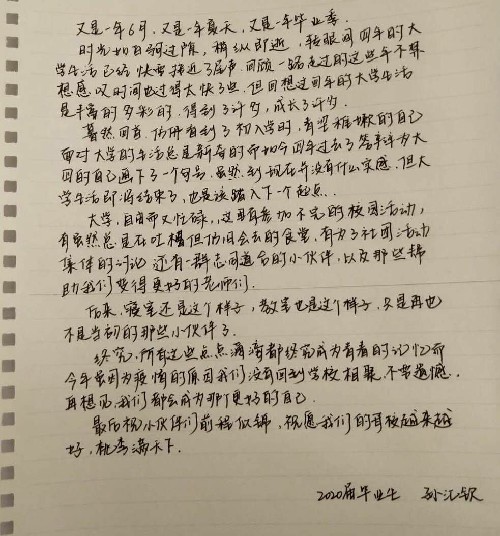 又是一年6月,又是一年夏天,又是一年毕业季.
时光如白驹过隙,稍纵即逝,转眼间四年的大
学生活已经快要接近了尾声.回顾一路走过的这些年不禁
想感叹时间也过得太快了些.但回想这四年的大学生活
是丰富的多彩的.得到了许多,成长了许多.
蓦然回首,仿佛看到了初入学时,有些稚嫩的自己
面对大学的生活总是新奇的而如今四年过去了答辩评为大
四的自己画下了一个句号.虽然到现在并没有什么实感.但大
学生活即将结束了,也是该踏入下一个起点...
大学,自由而又忙碌,这里有参加不完的校园活动,
有虽然总是在吐槽但仍旧会去的食堂,有为了社团活动
集体的讨论 还有一群志同道合的小伙伴,以及那些帮
助我们变得更好的老师们.
后来,寝室还是这个样子,教室也是这个样子,只是再也
不是当初的那些小伙伴了.
终究,所有这些点点滴滴都终究成为青春的记忆而
今年虽因为疫情的原因我们没有回到学校相聚.不带遗憾.
再想见.我们都会成为那个更好的自己.
最后祝小伙伴们前程似锦,祝愿我们的母校越来越
好,桃李满天下.
2020届毕业生 孙